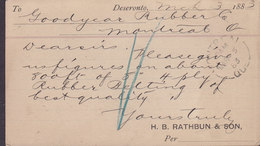 To Deseronto, Mch 3 1883
Goodyear Rubber Co
Montreal
Dear sirs, Please give
us figures on about
800 ft of 5 in 4 ply
Rubber Belting of
best quality
Yours truly
H. B. RATHBUN & SON,
Per